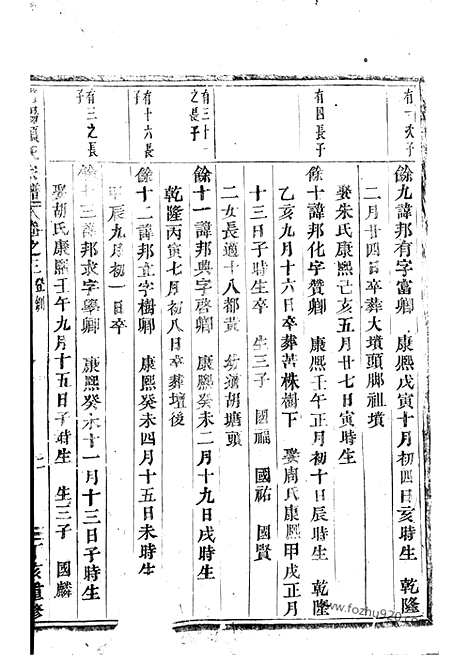 有一次子
餘九諱邦有字富卿 康熙戊寅十月初四日亥時生 乾隆
二月廿四日卒葬大墳頭脚祖墳
娶朱氏康熙己亥五月廿七日寅時生
有四長子
餘十諱邦化字贊卿 康熙壬午正月初十日辰時生 乾隆
乙亥九月十六日卒葬苦株樹下 娶周氏康熙甲戌正月
十三日子時生卒 生三子 國福 國祐 國賢
二女長適十八都黃 幼適胡塘頭
有三十一
之長子
餘十一諱邦典字啓卿 康熙癸未二月十九日戌時生
乾隆丙寅七月初八日卒葬壇後
有十六長
子
餘十二諱邦宜字樹卿 康熙癸未四月十五日未時生
甲辰九月初一日卒
有三之長
子
餘十三諱邦求字學卿 康熙癸未十一月十三日子時生
娶胡氏康熙壬午九月十五日子時生 生三子 國麟
宗譜 卷之三
丁亥重修
www.fozhu920.com